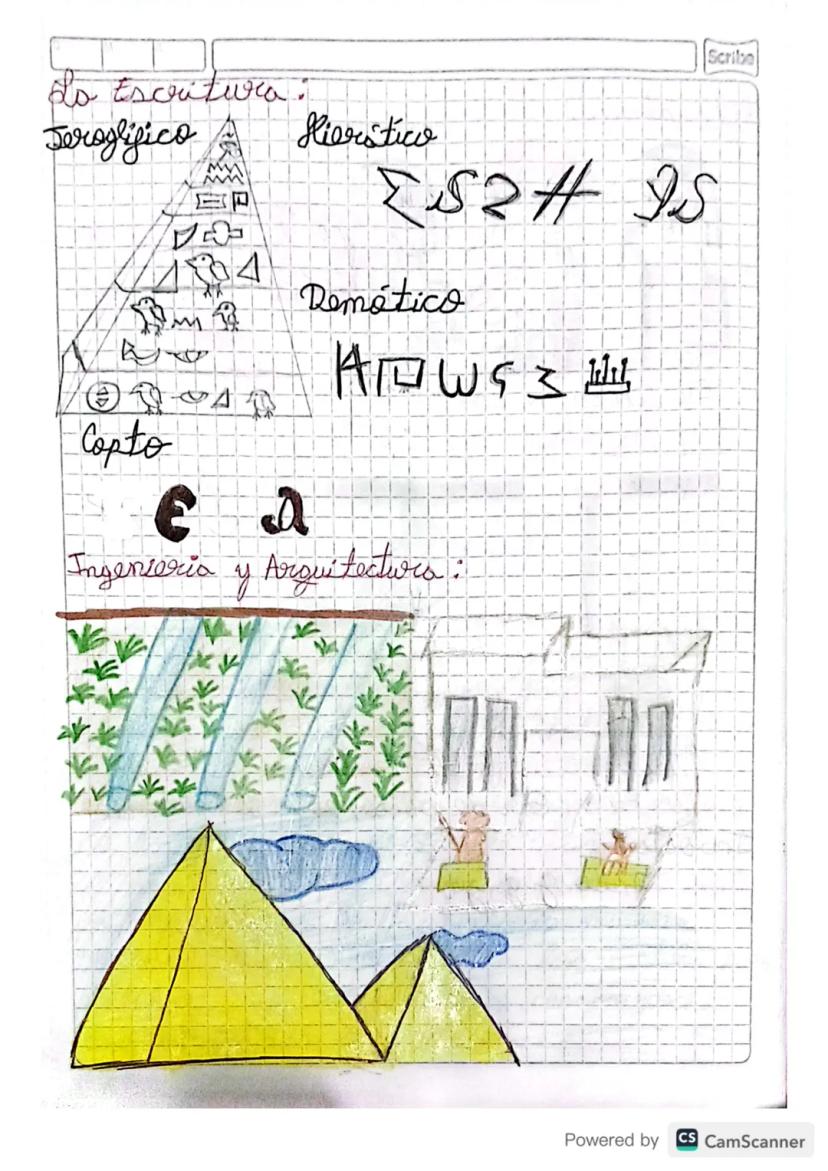 Scribe
La Escritura:
Jeroglífico
Hierático
Demótico
Copto
Ingeniería y Arquitectura:
Powered by CS CamScanner